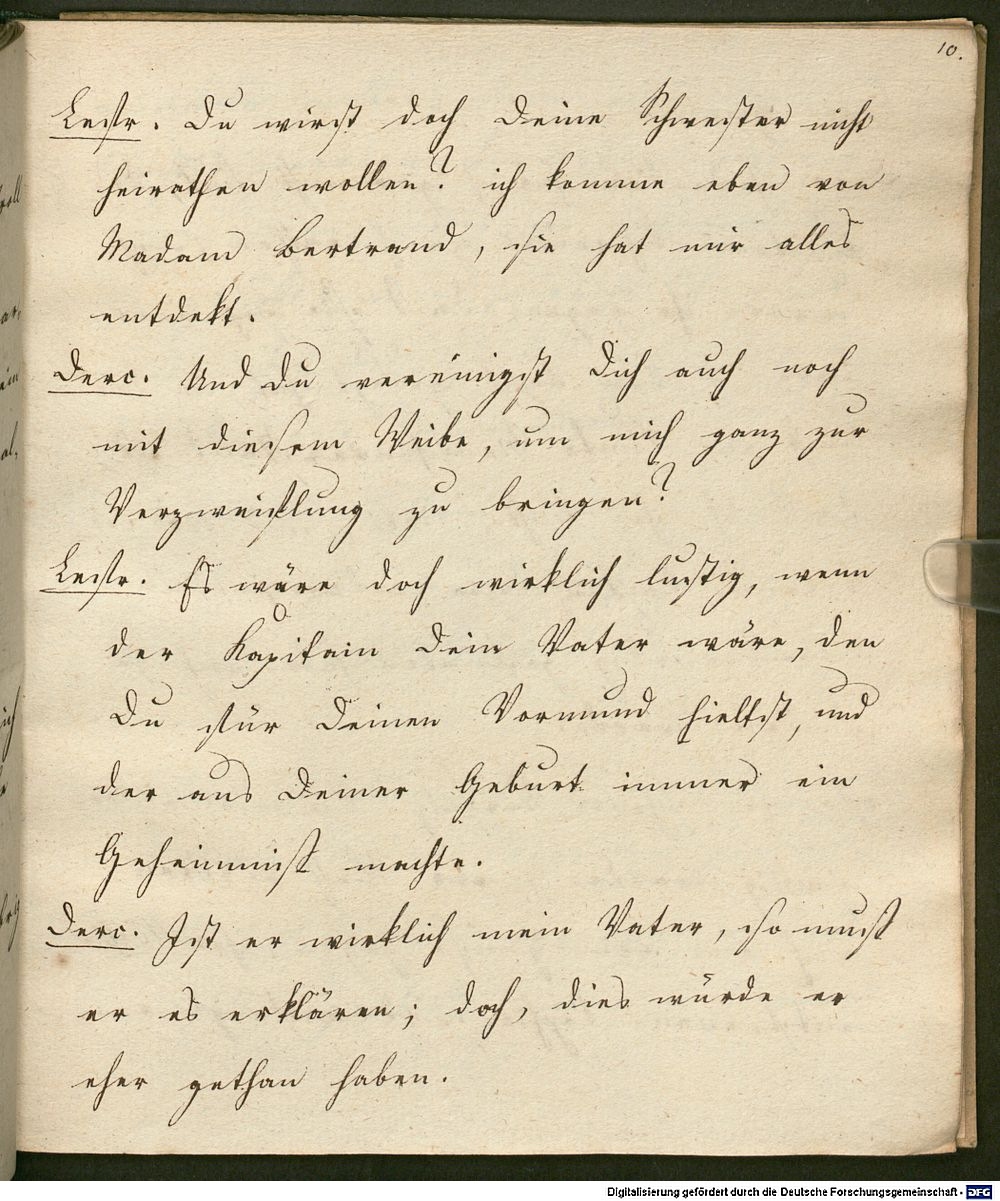 10.
Lestr. Du wirst doch Deine Schwester nicht
heirathen wollen? ich komme eben von
Madam Bertrand, sie hat mir alles
entdekt.
Derc. Und Du vereinigst Dich auch noch
mit diesem Weibe, um mich ganz zur
Verzweiflung zu bringen?
Lestr. Es wäre doch wirklich lustig, wenn
der Kapitain Dein Vater wäre, den
Du für Deinen Vormund hieltst, und
der aus Deiner Geburt immer ein
Geheimniß machte.
Derc. Ist er wirklich mein Vater, so muß
er es erklären; doch, dies würde er
eher gethan haben.
Digitalisierung gefördert durch die Deutsche Forschungsgemeinschaft - DFG